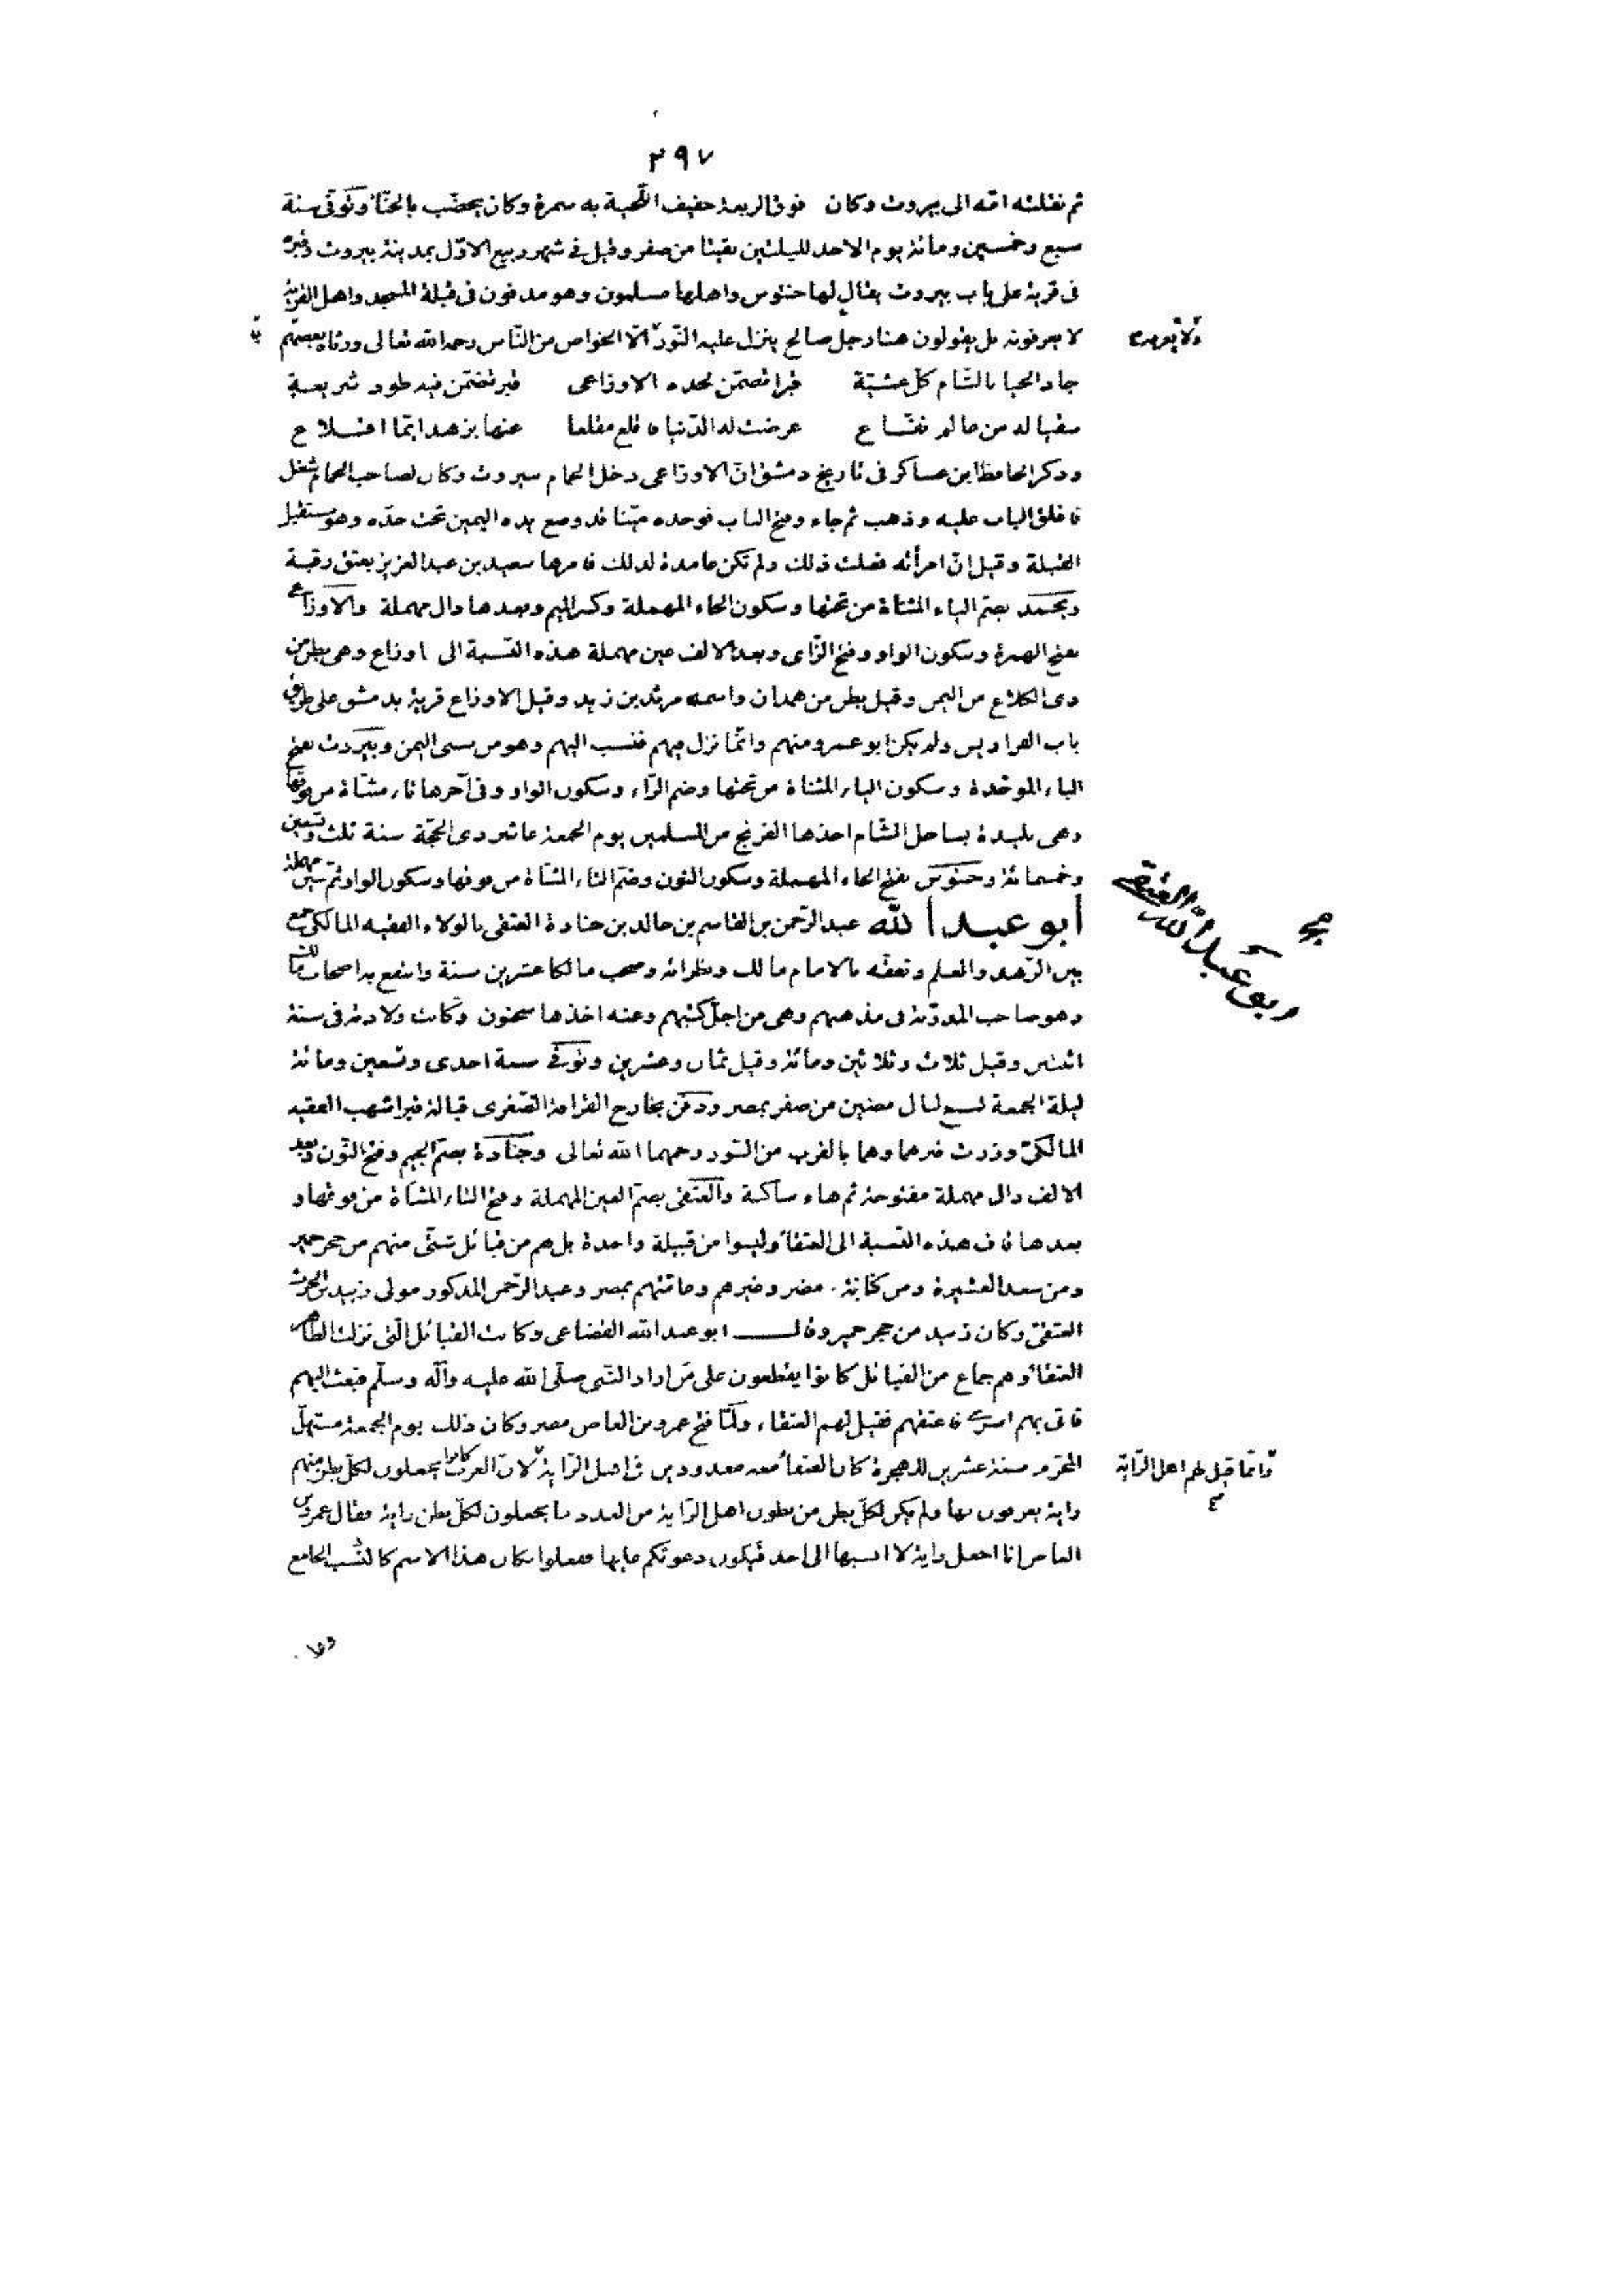 ٢٩٧
ثم نقلته امّه الى بيروت وكان فوق الربعة خفيف اللّحية به سمرة وكان يخضب بالحنّاء وتوفّى سنة
سبع وخمسين ومائة يوم الاحد لليلتين بقيتا من صفر وقيل فى شهر ربيع الاوّل بمدينة بيروت وقبره
فى قرية على باب بيروت يقال لها حنتوس واهلها مسلمون وهو مدفون فى قبلة المسجد واهل القرية
لا يعرفونه بل يقولون هنا رجل صالح ينزل عليه النّور الّا الخواص من النّاس رحمه الله تعالى ورثاه بعضهم
ولا يعرفه
جاد الحيا بالشّام كلّ عشيّة قبرا تضمّن لحده الاوزاعى قبر تضمّن فيه طود شريعة
سقيا له من عالم نفّاع عرضت له الدّنيا فاقلع مقلعا عنها بزهد ايّما اقلاع
وذكر الحافظ ابن عساكر فى تاريخ دمشق انّ الاوزاعى دخل الحمام ببيروت وكان لصاحب الحمام شغل
فاغلق الباب عليه وذهب ثم جاء وفتح الباب فوجده ميّتا قد وضع يده اليمين تحت خدّه وهو مستقبل
القبلة وقيل انّ امرأته فعلت ذلك ولم تكن عامدة لذلك فامرها سعيد بن عبد العزيز بعتق رقبة
ويحمد بضم الياء المثناة من تحتها وسكون الحاء المهملة وكسر الميم وبعدها دال مهملة والاوزاعى
بفتح الهمزة وسكون الواو وفتح الزّاى وبعد الالف عين مهملة هذه النّسبة الى اوزاع وهى بطن من
ذى الكلاع من اليمن وقيل بطن من همدان واسمه مرثد بن زيد وقيل الاوزاع قرية بدمشق على طريق
باب الفراديس ولم يكن ابو عمرو منهم وانّما نزل فيهم فنسب اليهم وهو من سبى اليمن وبيروت بفتح
الباء الموحّدة وسكون الياء المثناة من تحتها وضم الرّاء وسكون الواو وفى آخرها تاء مثنّاة من فوقها
وهى بليدة بساحل الشّام اخذها الفرنج من المسلمين يوم الجمعة عاشر ذى الحجّة سنة ثلث وتسعين
وخمسمائة وحنتوس بفتح الحاء المهملة وسكون النون وضم التاء المثنّاة من فوقها وسكون الواو ثم سين مهملة
أبو عبد الله عبد الرّحمن بن القاسم بن خالد بن جنادة العتقى بالولاء الفقيه المالكى جمع
ابو عبد الله العتقى
بين الزّهد والعلم وتفقّه بالامام مالك ونظرائه وصحب مالكا عشرين سنة وانتفع به اصحاب مالك
وهو صاحب المدوّنة فى مذهبهم وهى من اجلّ كتبهم وعنه اخذها سحنون وكانت ولادته فى سنة
اثنين وقيل ثلاث وثلاثين ومائة وقيل ثمان وعشرين وتوفّى سنة احدى وتسعين ومائة
ليلة الجمعة لسبع ليال مضين من صفر بمصر ودفن بخارج القرافة الصّغرى قبالة قبر اشهب الفقيه
المالكىّ وزرت قبرهما وهما بالقرب من السّور رحمهما الله تعالى وجنادة بضم الجيم وفتح النّون وبعد
الالف دال مهملة مفتوحة ثم هاء ساكنة والعتقى بضم العين المهملة وفتح التاء المثنّاة من فوقها و
بعدها قاف هذه النّسبة الى العتقاء وليسوا من قبيلة واحدة بل هم من قبائل شتّى منهم من حجر حمير
ومن سعد العشيرة ومن كنانة مضر وغيرهم وعامّتهم بمصر وعبد الرّحمن المذكور مولى زبيد بن الحرث
العتقىّ وكان زبيد من حجر حمير وقال ابو عبد الله القضاعى وكانت القبائل الّتى نزلت الظاهر
العتقاء وهم جماع من القبائل كانوا يقطعون على من اراد النّبى صلّى الله عليه وآله وسلّم فبعث اليهم
فاتى بهم اسرى فاعتقهم فقيل لهم العتقاء ولمّا فتح عمرو بن العاص مصر وكان ذلك يوم الجمعة مستهلّ
المحرّم سنة عشرين للهجرة كان العتقاء معه معدودين فى اهل الرّاية لانّ العرب كانوا يجعلون لكلّ بطن منهم
وانّما قيل لهم اهل الرّاية
راية يعرفون بها ولم يكن لكلّ بطن من بطون اهل الرّاية من العدد ما يجعلون لكلّ بطن راية فقال عمرو بن
العاص انا اجعل راية لا انسبها الى احد فيكون دعوتكم عليها ففعلوا فكان هذا الاسم كالنّسب الجامع